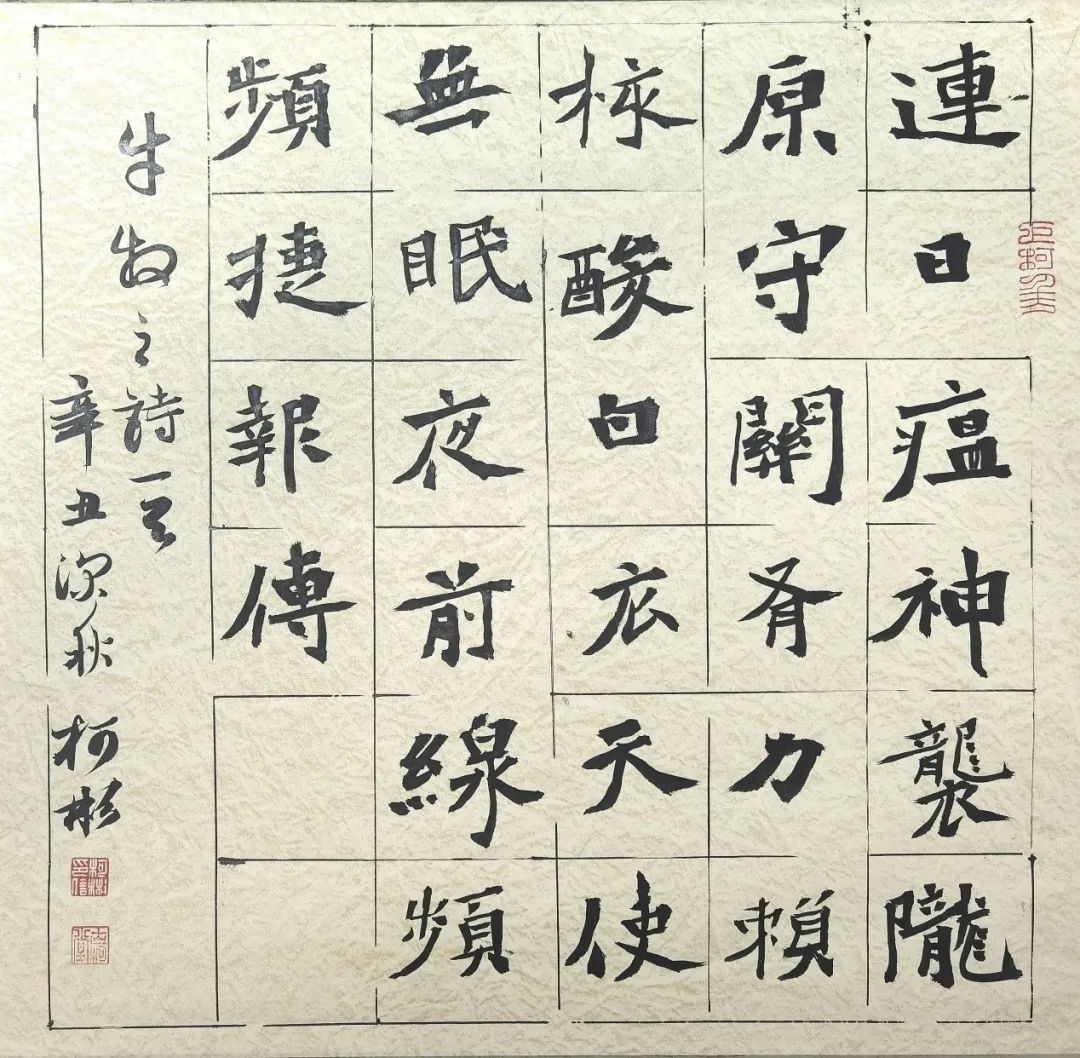 連日瘟神襲隴
原守關胥力賴
核酸白衣天使
無眠夜前線頻
頻捷報傳
牛牧之詩一首
辛丑深秋 柯彬